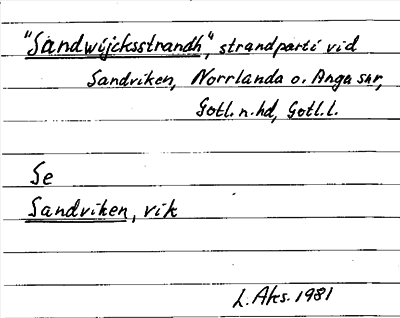 "Sandwijcksstrandh", strandparti vid
Sandviken, Norrlanda o. Anga snr,
Gotl. n. hd, Gotl. l.
Se
Sandviken, vik
L. Aks. 1981